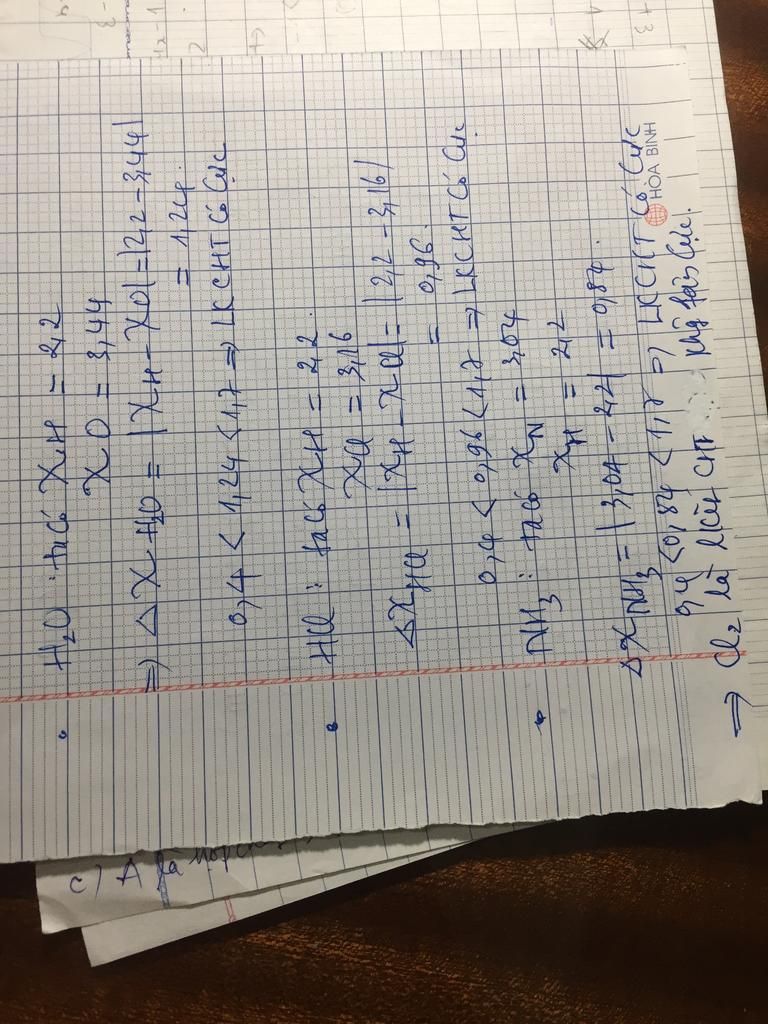 H₂O : ta có XH = 2,2
XO = 3,44
=> ΔX H₂O = |XH - XO| = |2,2 - 3,44|
= 1,24.
0,4 < 1,24 < 1,7 => LKCHT Có Cực
HCl : ta có XH = 2,2.
XCl = 3,16
ΔXHCl = |XH - XCl| = |2,2 - 3,16|
= 0,96.
0,4 < 0,96 < 1,7 => LKCHT Có Cực.
NH₃ : ta có XN = 3,04
XH = 2,2
ΔXNH₃ = |3,04 - 2,2| = 0,84.
0,4 < 0,84 < 1,7 => LKCHT Có Cực
=> Cl₂ là liên CHT phân Cực.
HÒA BÌNH
c) A là